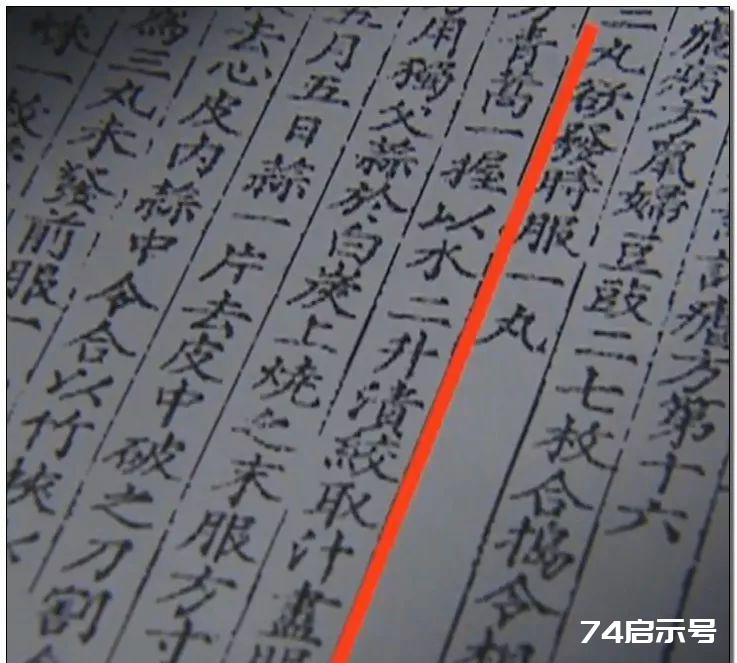 諸瘧方第十六
瘧病方鼠婦豆豉二七枚合搗令相
三丸欲發時服一丸
方青蒿一握以水二升漬絞取汁盡服
用獨父蒜於白炭上燒之末服方寸
五月五日蒜一片去皮中破之刀割合
去心皮內蒜中令合以竹挾以
為三丸未發前服一
一枚
74启示号